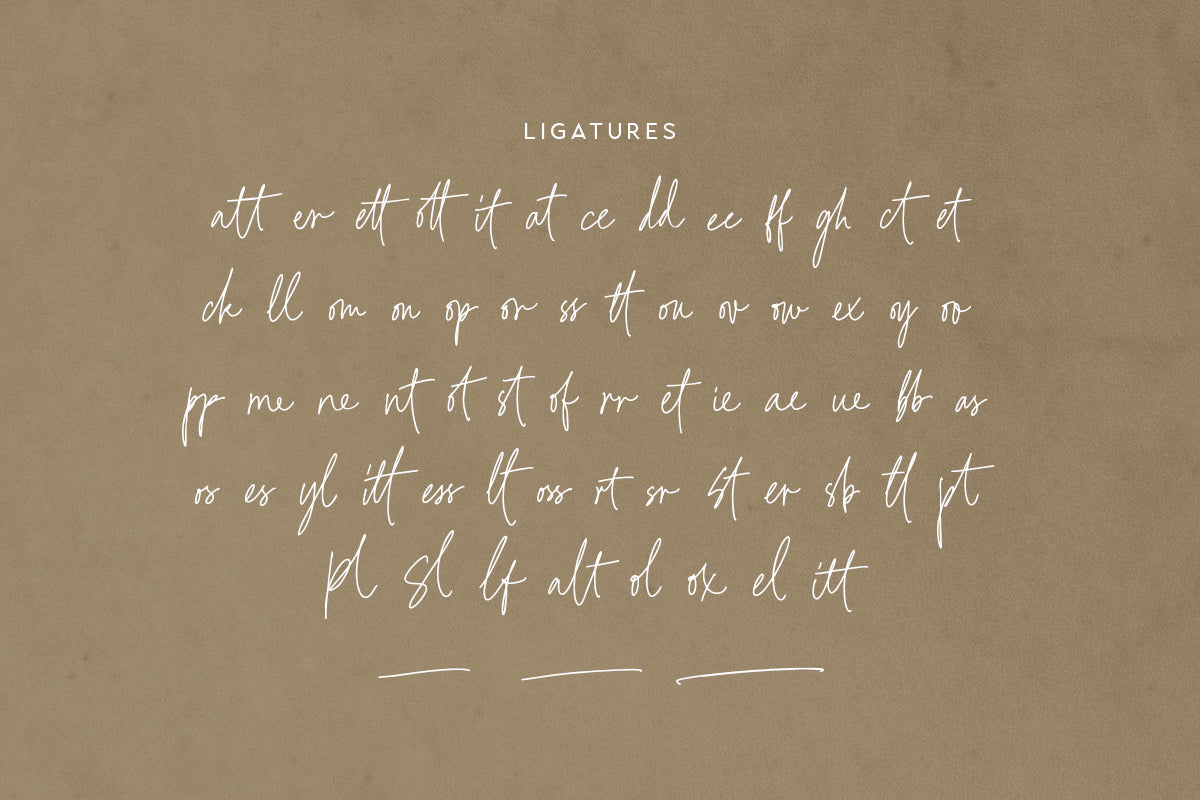 LIGATURES
att er ett ott it at ce dd ee ff gh ct et
ck ll om on op or ss tt ou ov ow ex oy oo
pp me ne nt ot st of rr et ie ae ue bb as
os es yl itt ess lt oss rt sr St er sb tl pt
Pl Sl lf alt ol ox el itt